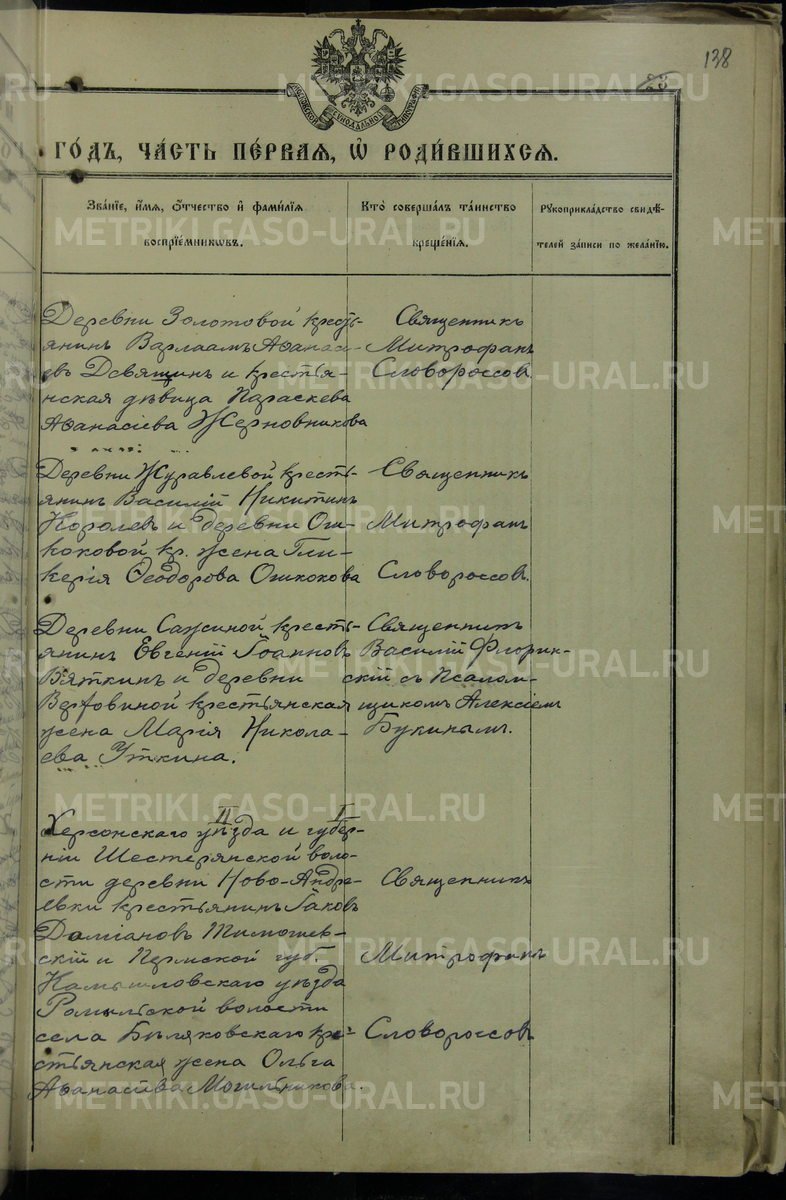 138
МОСКОВСКОЙ СѴНОДАЛЬНОЙ ТИПОГРАФІИ
ГО́ДЪ, ЧА́СТЬ ПЕ́РВАѦ, Ѡ҆ РОДИ́ВШИХСѦ.
Зва́нїе, и҆́мѧ, ѻ҆́тчество и҆ фами́лїѧ
воспрїе́мникѡвъ.
Кто̀ соверша́лъ та́инство
креще́нїѧ.
Рꙋкоприкла́дство свидѣ́-
телей за́писи по жела́нїю.
Деревни Золотовой кресть-
янинъ Варлаамъ Аѳанась-
евъ Девящинъ и крестья-
нская дѣвица Параскева
Аѳанасіева Жерновникова
Священникъ
Митрофанъ
Словороссовъ
Деревни Журавлевой кресть-
янинъ Василій Никитинъ
Королевъ и деревни Ош-
коковой кр. жена Гли-
керія Ѳеодорова Ошкокова
Священникъ
Митрофанъ
Словороссовъ.
Деревни Сажиной кресть-
янинъ Евгеній Іоанновъ
Вяткинъ и деревни
Верховиной крестьянская
жена Марія Никола-
ева Уткина.
Священникъ
Василій Флорин-
скій съ Псалом-
щикомъ Алексіемъ
Букинымъ.
II I
Херсонскаго уѣзда и губер-
ніи Шестерянской воло-
сти деревни Ново-Андре-
евки крестьянинъ Іаковъ
Даміановъ Тимошев-
скій и Пермской губ.
Камышловскаго уѣзда
Ромыльской волости
села Бѣляковскаго кре-
стьянская жена Ольга
Аѳанасіева Могильникова.
Священникъ
Митрофанъ
Словороссовъ
METRIKI.GASO-URAL.RU